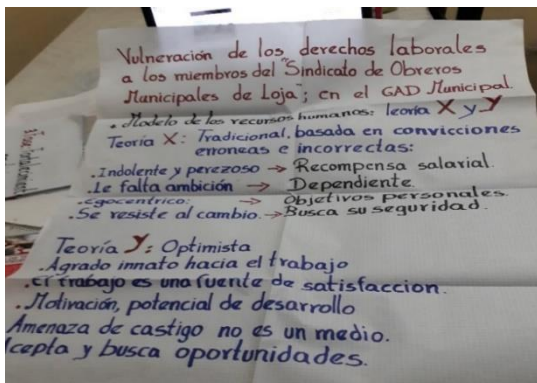 Vulneración de los derechos laborales
a los miembros del "Sindicato de Obreros
Municipales de Loja"; en el GAD Municipal.
. Modelo de los recursos humanos: teoría X y Y
Teoría X: Tradicional, basada en convicciones
erroneas e incorrectas:
. Indolente y perezoso → Recompensa salarial.
. Le falta ambición → Dependiente.
. Egocentrico: → Objetivos personales.
. Se resiste al cambio. → Busca su seguridad.
Teoría Y: Optimista
. Agrado innato hacia el trabajo
. El trabajo es una fuente de satisfaccion.
. Motivación, potencial de desarrollo
Amenaza de castigo no es un medio.
cepta y busca oportunidades.